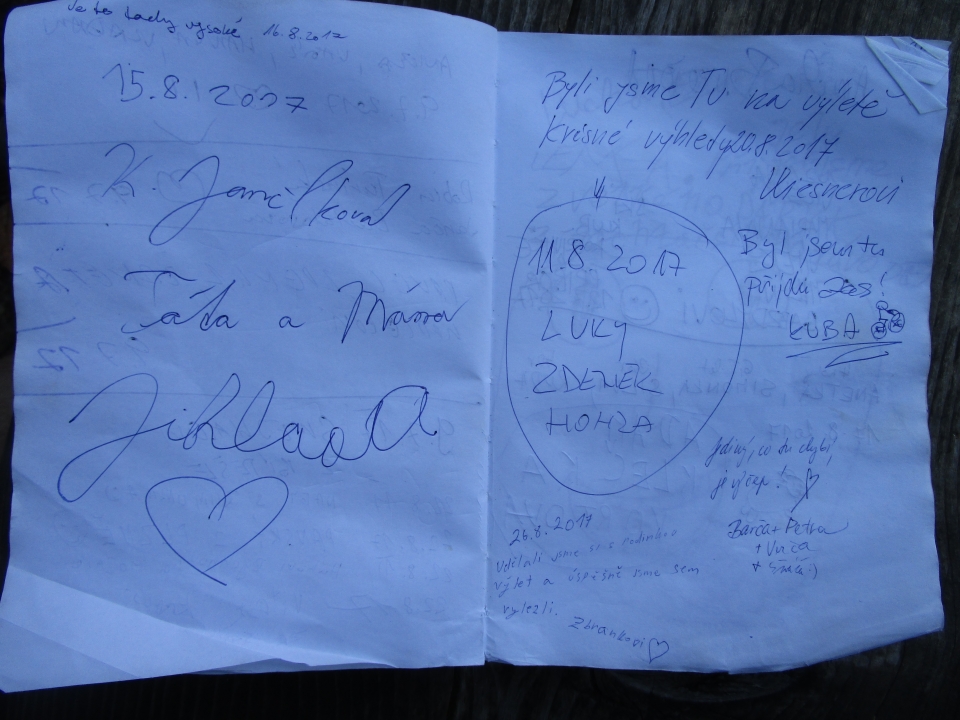 Je to tady vysoké 16.8.2017
15.8.2017
K. Jančíková
Táda a Máma
Jihlava
Byli jsme Tu na výletě
krásné výhledy 20.8.2017
Wiesnerovi
11.8.2017
LUKY
ZDENĚK
HONZA
Byl jsem tu
přijdu zas!
KUBA
Jediný, co tu chybí,
je výčep!
Barča + Petra
+ Vnúča
26.8.2017
Udělali jsme si s rodinkou
výlet a úspěšně jsme sem
vylezli.
Zbrankovi